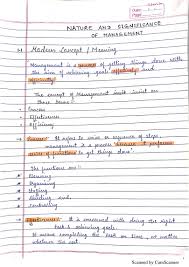 NATURE AND SIGNIFICANCE
OF MANAGEMENT
Modern Concept / Meaning
Management is a process of getting things done with
the aim of achieving goals effectively and
efficiently.
The concept of Management insist on
three terms:
Process
Effectiveness
Efficiency
Process: It refers to series or sequence of steps.
management is a process because it performs
series of functions to get things done.
The functions are:
Planning
Organising
Staffing
Directing and
Controlling
Effectiveness: It is concerned with doing the right
task & achieving goals.
It means completing the task on time, no matter
whatever the cost.
Scanned by CamScanner